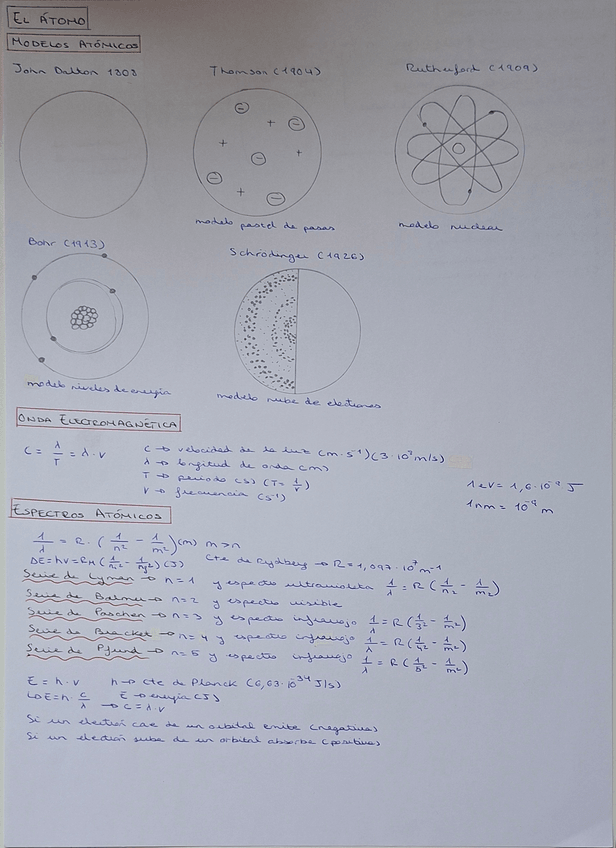 EL ÁTOMO
MODELOS ATÓMICOS
John Dalton 1808
Thomson (1904)
Rutherford (1909)
modelo pastel de pasas
modelo nuclear
Bohr (1913)
Schrödinger (1926)
modelo niveles de energía
modelo nube de electrones
ONDA ELECTROMAGNÉTICA
C = λ/T = λ·ν
C → velocidad de la luz (m·s⁻¹)
λ → longitud de onda (m)
T → periodo (s) (T = 1/ν)
ν → frecuencia (s⁻¹)
1 nm = 10⁻⁹ m
ESPECTROS ATÓMICOS
1/λ = R · (1/n² − 1/m²) (m) m>n
Cte de Rydberg → R = 1,097 · 10⁷ m⁻¹
Serie de Lyman → n=1 y espectro ultravioleta 1/λ = R (
Serie de Balmer → n=2 y espectro visible
Serie de Paschen → n=3 y espectro infrarrojo 1/λ = R (1/3² − 1/m²)
Serie de Bracket → n=4 y espectro infrarrojo 1/λ = R (1/4² − 1/m²)
Serie de Pfund → n=5 y espectro infrarrojo 1/λ = R (1/5² − 1/m²)
E = h · ν h → cte de Planck (6,63·10⁻³⁴ J/s)
↳ E = h · C/λ E → energía (J)
→ C = λ·ν
Si un electrón cae de un orbital emite (negativas)
Si un electrón sube de un orbital absorbe (positivas)